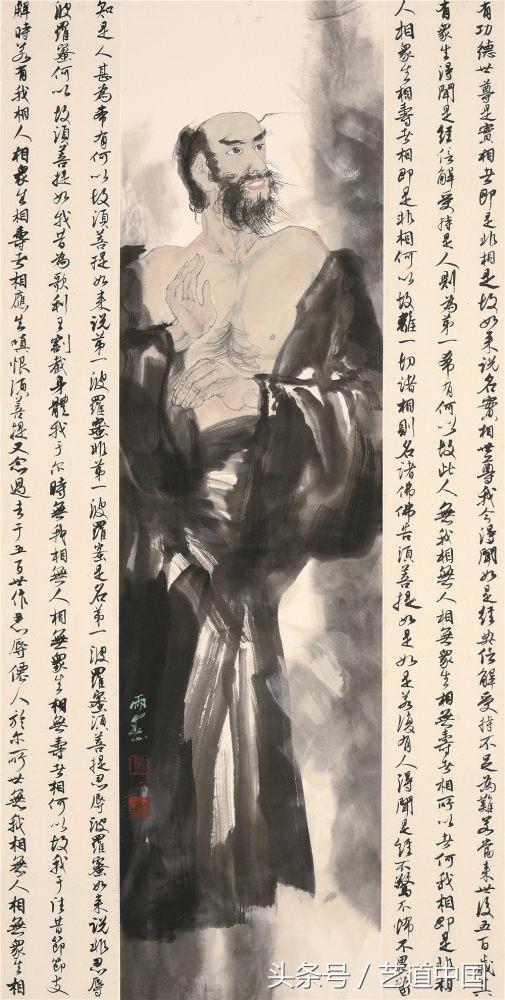 有功德世尊是實相者即是非相是故如来说名實相世尊我今得聞如是經典信解受持不足為難若當来世後五百歲其
有衆生得聞是經信解受持是人則為第一希有何以故此人無我相無人相無衆生相無壽者相所以者何我相即是非相
人相衆生相壽者相即是非相何以故離一切諸相則名諸佛佛告須菩提如是如是若復有人得聞是經不驚不怖不畏當
知是人甚為希有何以故須菩提如来说第一波羅蜜非第一波羅蜜是名第一波羅蜜須菩提忍辱波羅蜜如来说非忍辱
波羅蜜何以故須菩提如我昔為歌利王割截身體我于尔時無我相無人相無衆生相無壽者相何以故我于往昔節節支
解時若有我相人相衆生相壽者相應生嗔恨須菩提又念過去于五百世作忍辱僊人於尔所世無我相無人相無衆生相
雨
头条号 / 艺道中国